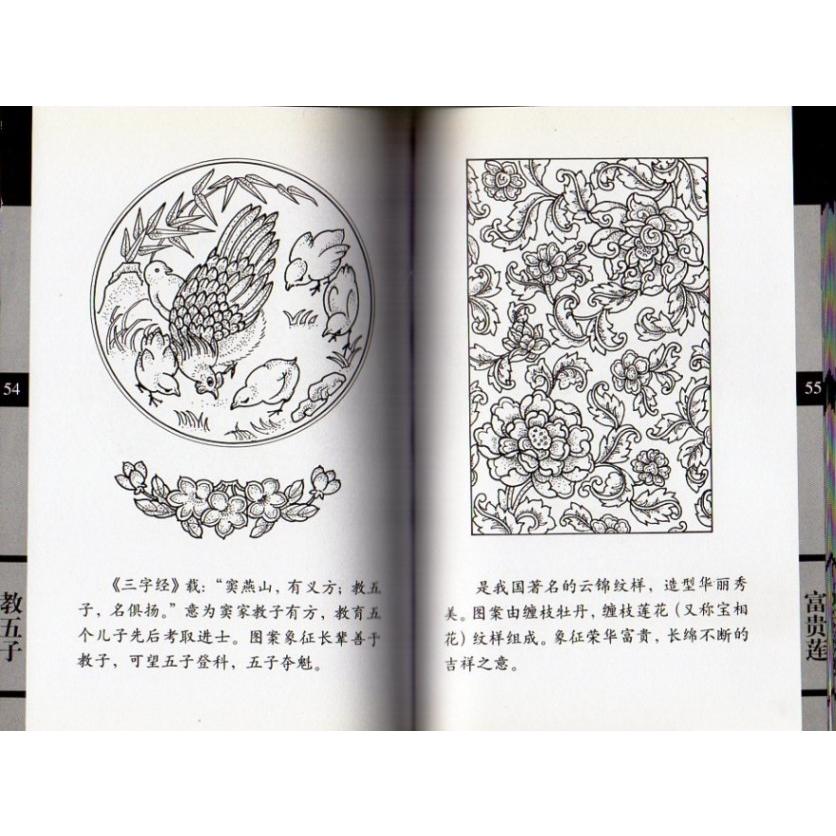 54
教五子
《三字经》载：“窦燕山，有义方；教五
子，名俱扬。”意为窦家教子有方，教育五
个儿子先后考取进士。图案象征长辈善于
教子，可望五子登科，五子夺魁。
55
富贵莲
是我国著名的云锦纹样，造型华丽秀
美。图案由缠枝牡丹，缠枝莲花（又称宝相
花）纹样组成。象征荣华富贵，长绵不断的
吉祥之意。